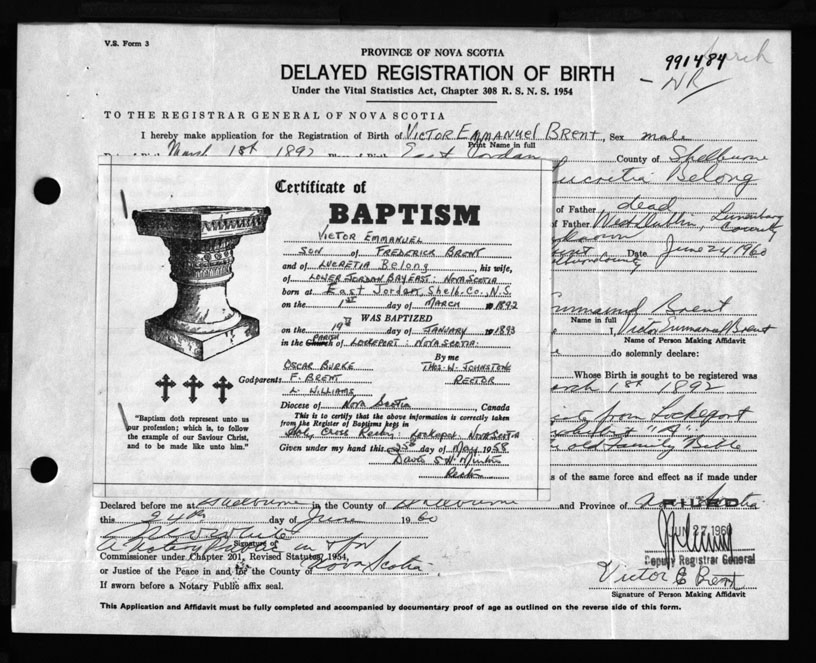 V.S. Form 3
PROVINCE OF NOVA SCOTIA
991484
DELAYED REGISTRATION OF BIRTH
NR
Under the Vital Statistics Act, Chapter 308 R. S. N. S. 1954
TO THE REGISTRAR GENERAL OF NOVA SCOTIA
I hereby make application for the Registration of Birth of VICTOR EMMANUEL BRENT, Sex male
Print Name in full
March 1st 1892 East Jordan County of Shelburne
Lucretia Belong
of Father dead
of Father West Dublin, Lunenburg County
Date June 24 1960
Emmanuel Brent
Name in full
I, Victor Emmanuel Brent
Name of Person Making Affidavit
do solemnly declare:
Whose Birth is sought to be registered was
March 1st 1892
from Lockeport
old family Bible
s of the same force and effect as if made under
Certificate of
BAPTISM
VICTOR EMMANUEL
SON of FREDERICK BRENT
and of LUCRETIA Belong his wife,
of LOWER JORDAN BAY EAST: NOVA SCOTIA
born at East Jordan, Shelb. Co., N.S.
on the 1st day of MARCH 1892
WAS BAPTIZED
on the 19th day of JANUARY 1893
in the Church PARISH of LOCKEPORT: NOVA SCOTIA.
By me
OSCAR BURKE THOS. W. JOHNSTONE
Godparents F. BRENT RECTOR
L. WILLIAMS
Diocese of NOVA SCOTIA, Canada
This is to certify that the above information is correctly taken
from the Register of Baptisms kept in
Holy Cross Rectory: Lockeport: NOVA SCOTIA
Given under my hand this 25th day of May 1958
Rector
"Baptism doth represent unto us
our profession; which is, to follow
the example of our Saviour Christ,
and to be made like unto him."
Declared before me at Shelburne in the County of Shelburne and Province of Nova Scotia
this 24th day of June 1960
FILED
JUN 27 1960
Signature of
A Notary Public in & for
Commissioner under Chapter 201, Revised Statutes, 1954,
Deputy Registrar General
or Justice of the Peace in and for the County of Nova Scotia
Victor E Brent
If sworn before a Notary Public affix seal.
Signature of Person Making Affidavit
This Application and Affidavit must be fully completed and accompanied by documentary proof of age as outlined on the reverse side of this form.